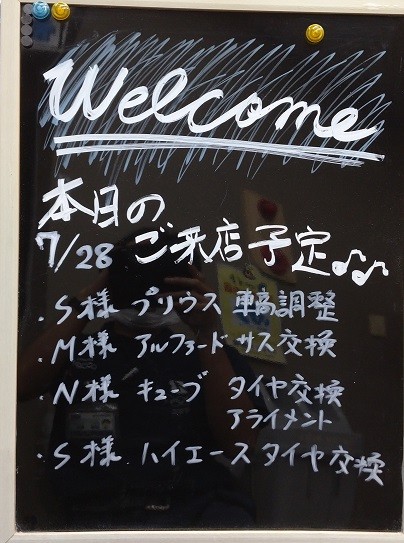 Welcome
本日の
7/28 ご来店予定♪♫
・S様 プリウス 車高調整
・M様 アルファード サス交換
・N様 キューブ タイヤ交換
アライメント
・S様 ハイエース タイヤ交換